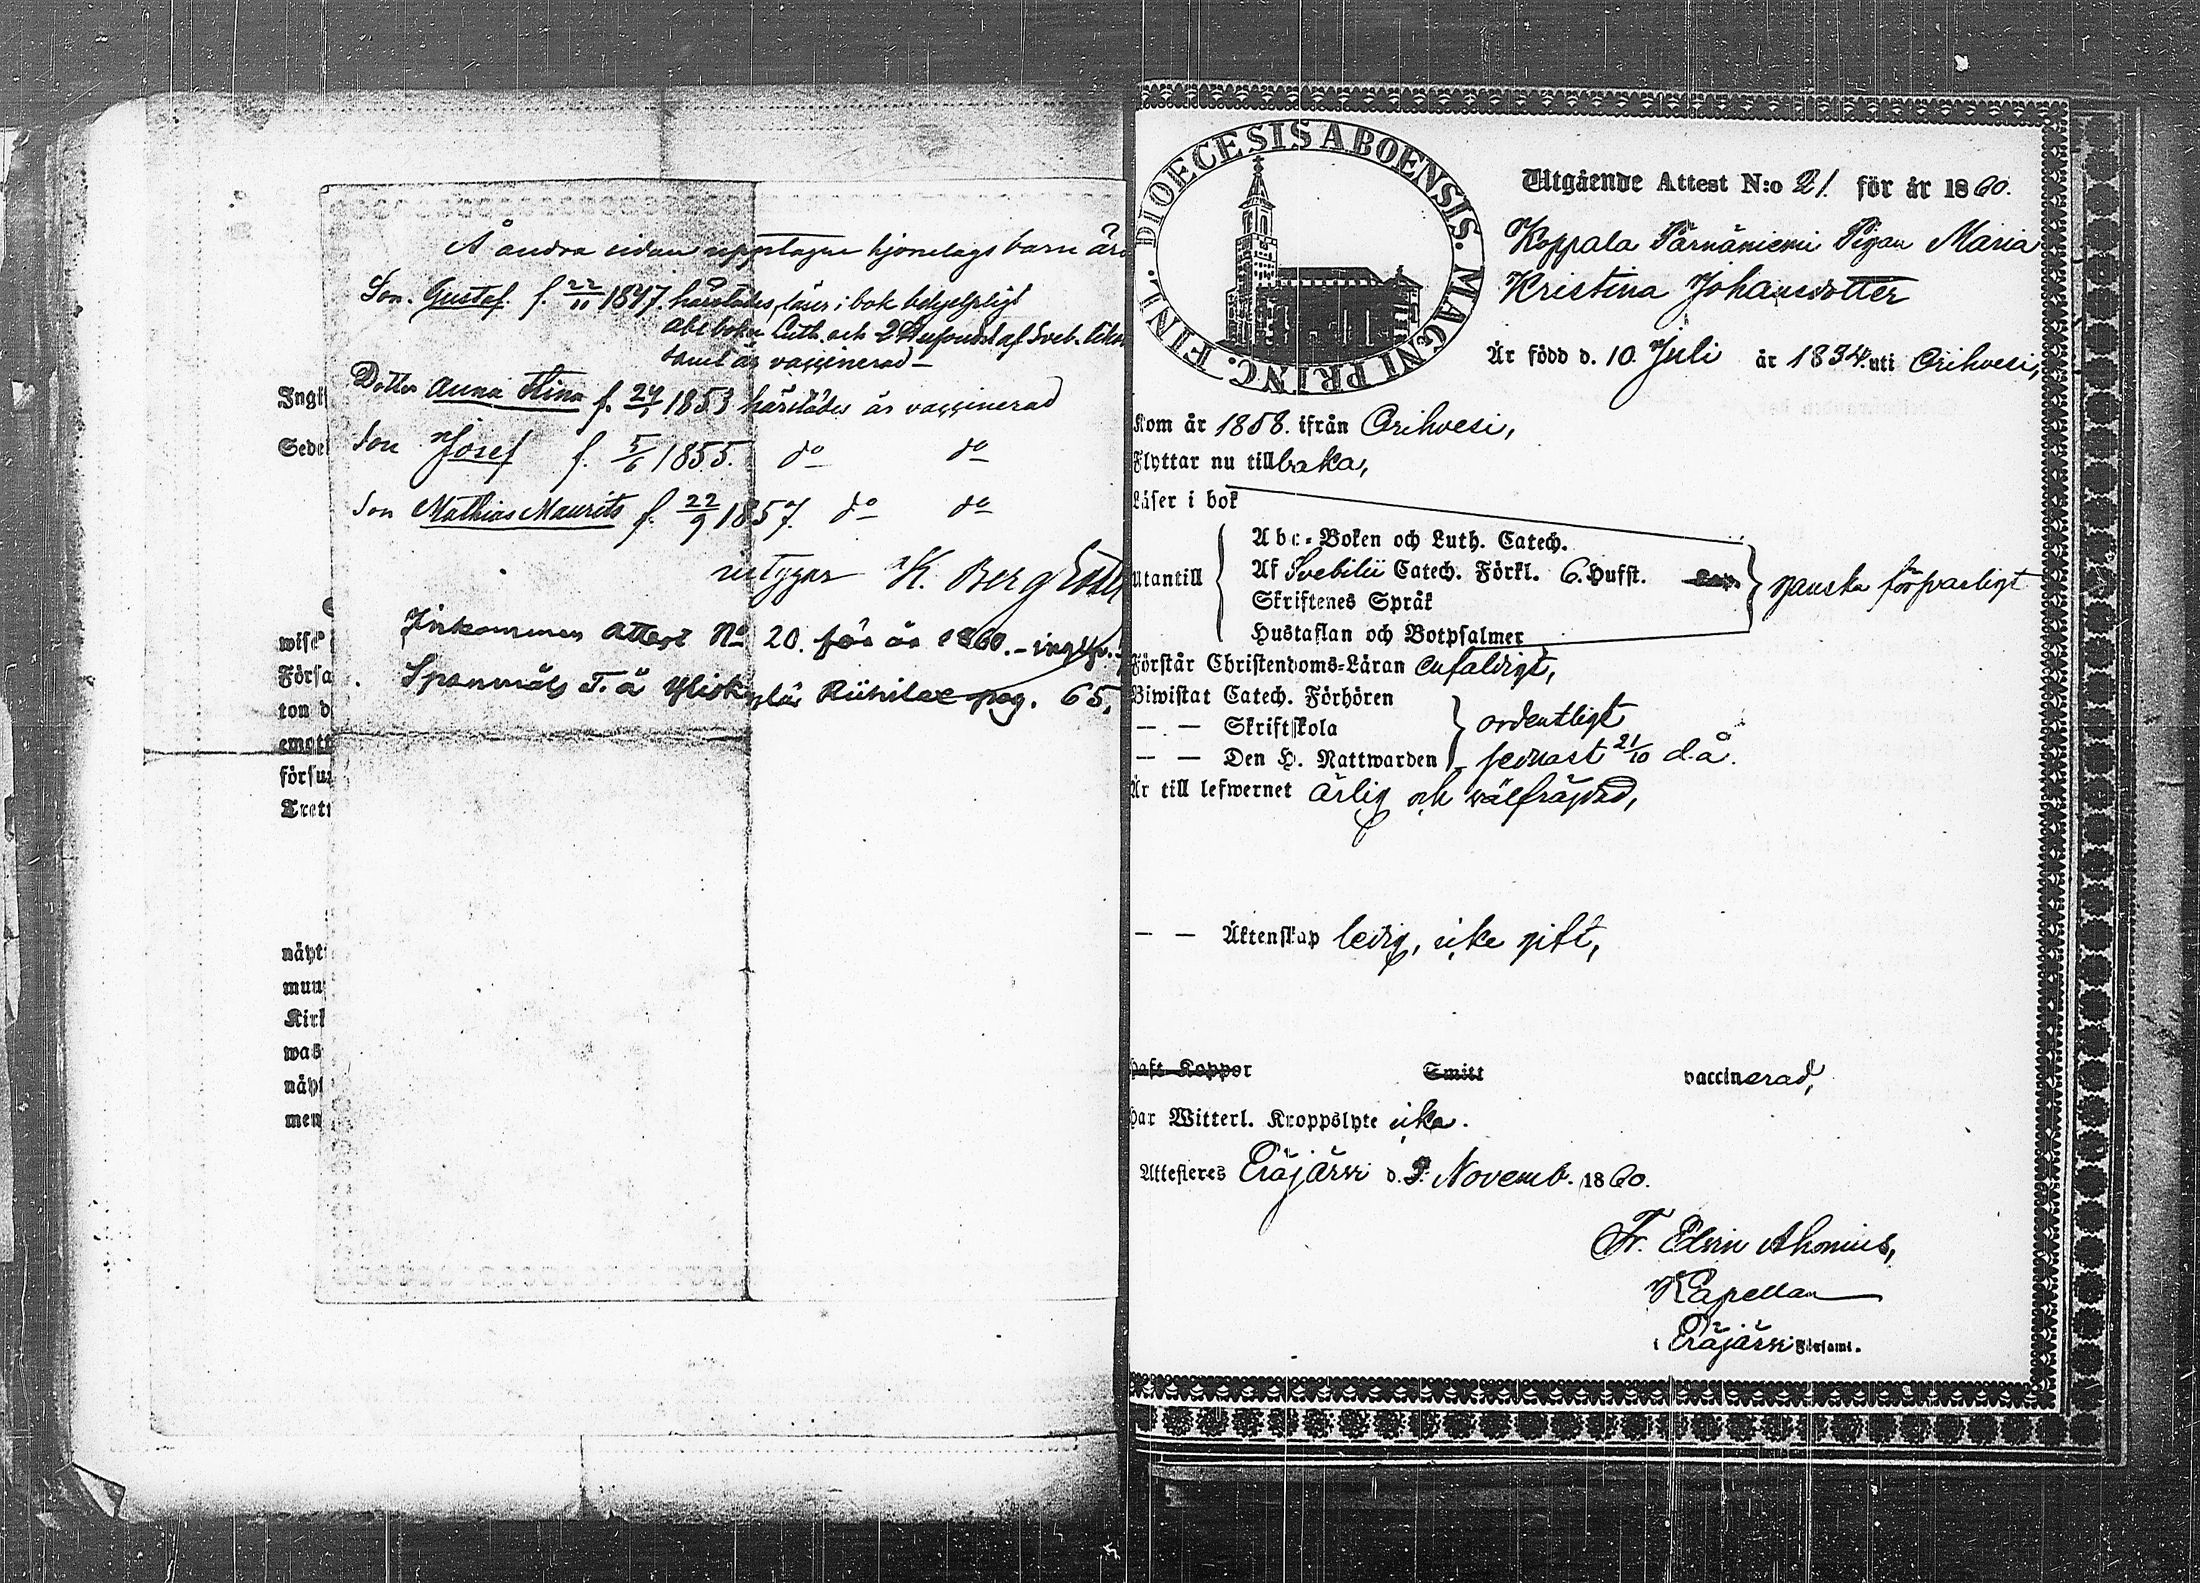 Å andra sidan upptagne hjonelags barn äro
Son. Gustaf. f. 22/11 1847. härstädes, läser i bok behjelpligt
abcboken Luth. och 2 Hufvudst af Sveb. 
samt är vaccinerad –
Dotter Anna Stina f. 24/1 1853 härstädes är vaccinerad
Son Josef f. 5/6 1855. do do
Son Mathias Maurits f. 22/9 1857. do do
intygar K. Berg
Inkommen Attest No 20. för år 1860. –
Spanmåls T. å pag. 65,
Ingif
Sedel
wise
Försa
ton d
emott
försum
Trett
näyt
muu
Kirk
was
näyt
men
DIOECESIS ABOENSIS. MAGNI PRINC. FINL.
Utgående Attest N:o 21. för år 1860.
Koppala Pärnäniemi Pigan Maria
Kristina Johansdotter
Är född d. 10 Juli år 1834. uti Orihvesi,
Kom år 1858. ifrån Orihvesi,
Flyttar nu tillbaka,
Läser i bok
Abc-Boken och Luth. Catech.
Utantill Af Svebilii Catech. Förkl. 6. Hufst. Cap. ganska försvarligt
Skriftenes Språk
Hustaflan och Botpsalmer
Förstår Christendoms-Läran enfaldigt,
Biwistat Catech. Förhören
— — Skriftskola ordentligt
— — Den H. Nattwarden senast 21/10 d.å.
Är till lefwernet ärlig och välfräjdad,
— — Äktenskap ledig, icke gift,
haft Koppor Smitt vaccinerad,
har Witterl. Kroppslyte icke.
Attesteres Eräjärvi d. 9. Novemb. 1860.
Fr. Edvin Ahonius,
Kapellan
i Eräjärvi Församl.